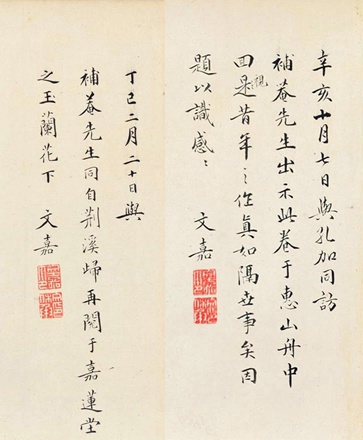 辛亥十月七日與孔加同訪
補菴先生出示此卷于惠山舟中
回視是昔年之作真如隔世事矣因
題以識感 文嘉
丁巳二月二十日與
補菴先生同自荆溪歸再閱于嘉蓮堂
之玉蘭花下 文嘉